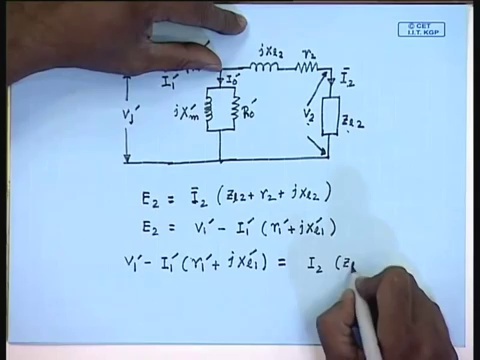 © CET
I.I.T. KGP
jxl2 r2
I1′ I0′ Ī2
V1′ jXm′ R0′ V2 Zl2
E2 = Ī2 (Zl2 + r2 + jxl2)
E2 = V1′ - I1′ (r1′ + jxl1′)
V1′ - I1′ (r1′ + jxl1′) = I2 (Zl